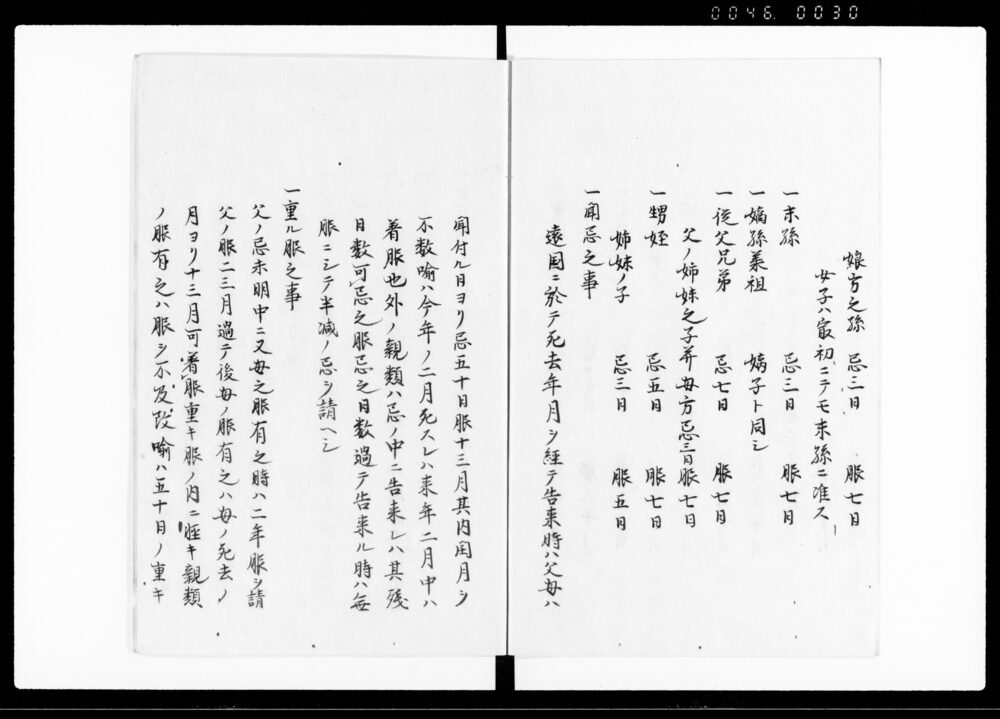 0046. 0030
娘方之孫 忌三日 服七日
女子ハ最初ニテモ末孫ニ准ス
一末孫 忌三日 服七日
一嫡孫養祖 嫡子ト同シ
一従父兄弟 忌七日 服七日
父ノ姉妹之子并母方忌三日服七日
一甥姪 忌五日 服七日
姉妹ノ子 忌三日 服五日
一聞忌之事
遠国ニ於テ死去年月ヲ経テ告来時ハ父母ハ
聞付ル日ヨリ忌五十日服十三月其内閏月ヲ
不数喩ハ今年ノ二月死スレハ来年二月中ハ
着服也外ノ親類ハ忌ノ中ニ告来レハ其残
日数可忌之服忌之日数過テ告来ル時ハ毎
服ニシテ半減ノ忌ヲ請ヘシ
一重ル服之事
父ノ忌未明中ニ又母之服有之時ハ二年服ヲ請
父ノ服二三月過テ後母ノ服有之ハ母ノ死去ノ
月ヨリ十三月可着服重キ服ノ内ニ軽キ親類
ノ服有之ハ服ヲ不及改喩ハ五十日ノ重キ